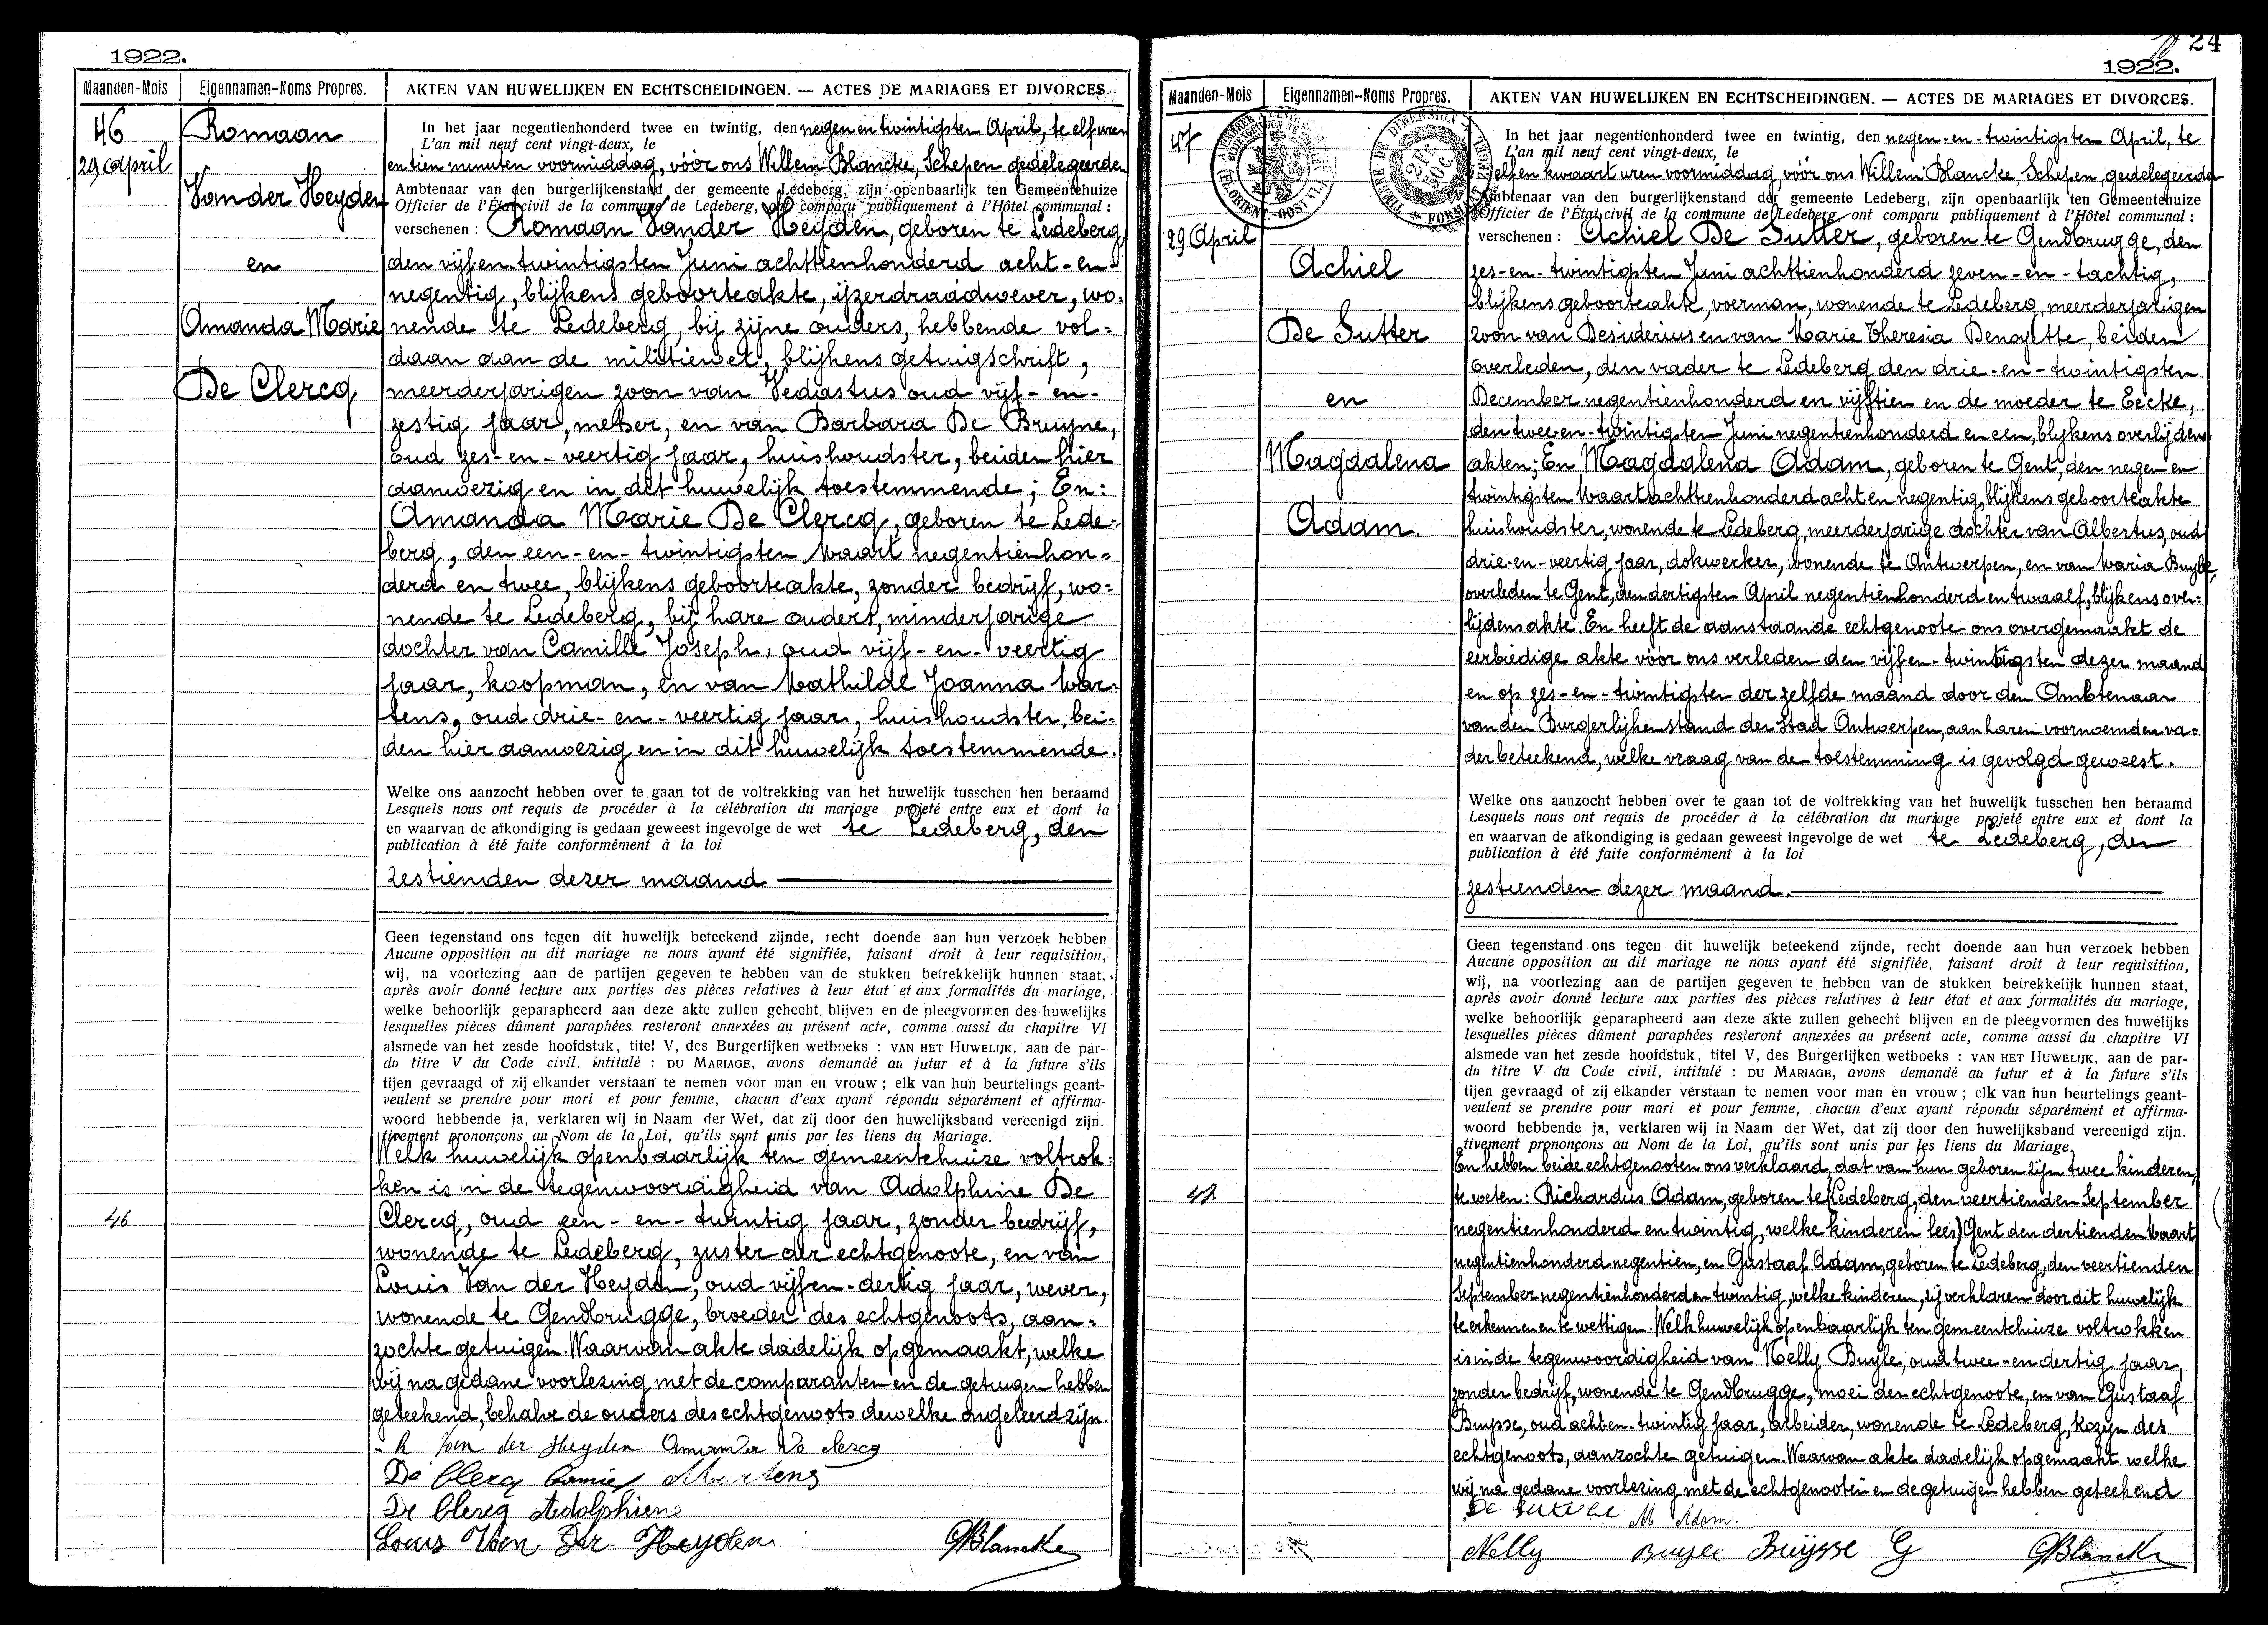 1922.
Maanden-Mois
Eigennamen-Noms Propres.
AKTEN VAN HUWELIJKEN EN ECHTSCHEIDINGEN. — ACTES DE MARIAGES ET DIVORCES.
46
29 april
Romaan
Van der Heyden
en
Amanda Marie
De Clercq
In het jaar negentienhonderd twee en twintig, den negen en twintigsten April, te elf uren
L'an mil neuf cent vingt-deux, le
en tien minuten voormiddag, vóór ons Willem Blancke, Schepen gedelegeerden
Ambtenaar van den burgerlijkenstand der gemeente Ledeberg, zijn openbaarlijk ten Gemeentehuize
Officier de l'État civil de la commune de Ledeberg, ont comparu publiquement à l'Hôtel communal :
verschenen : Romaan Vander Heyden, geboren te Ledeberg,
den vijf en twintigsten Juni achttienhonderd acht-en-
negentig, blijkens geboorteakte, ijzerdraadwever, wo-
nende te Ledeberg, bij zijne ouders, hebbende vol-
daan aan de militiewet, blijkens getuigschrift,
meerderjarigen zoon van Vedastus oud vijf-en-
zestig jaar, metser, en van Barbara De Bruyne,
oud zes-en-veertig jaar, huishoudster, beiden hier
aanwezig en in dit huwelijk toestemmende; En:
Amanda Marie De Clercq, geboren te Lede-
berg, den een-en-twintigsten Maart negentienhon-
derd en twee, blijkens geboorteakte, zonder bedrijf, wo-
nende te Ledeberg, bij hare ouders, minderjarige
dochter van Camille Joseph, oud vijf-en-veertig
jaar, koopman, en van Mathilde Joanna Mar-
tens, oud drie-en-veertig jaar, huishoudster, bei-
den hier aanwezig en in dit huwelijk toestemmende.
Welke ons aanzocht hebben over te gaan tot de voltrekking van het huwelijk tusschen hen beraamd
Lesquels nous ont requis de procéder à la célébration du mariage projeté entre eux et dont la
en waarvan de afkondiging is gedaan geweest ingevolge de wet te Ledeberg, den
publication à été faite conformément à la loi
zestienden dezer maand
Geen tegenstand ons tegen dit huwelijk beteekend zijnde, recht doende aan hun verzoek hebben
Aucune opposition au dit mariage ne nous ayant été signifiée, faisant droit à leur requisition,
wij, na voorlezing aan de partijen gegeven te hebben van de stukken betrekkelijk hunnen staat,
après avoir donné lecture aux parties des pièces relatives à leur état et aux formalités du mariage,
welke behoorlijk geparapheerd aan deze akte zullen gehecht blijven en de pleegvormen des huwelijks
lesquelles pièces dûment paraphées resteront annexées au présent acte, comme aussi du chapitre VI
alsmede van het zesde hoofdstuk, titel V, des Burgerlijken wetboeks : VAN HET HUWELIJK, aan de par-
du titre V du Code civil, intitulé : DU MARIAGE, avons demandé au futur et à la future s'ils
tijen gevraagd of zij elkander verstaan te nemen voor man en vrouw ; elk van hun beurtelings geant-
veulent se prendre pour mari et pour femme, chacun d'eux ayant répondu séparément et affirma-
woord hebbende ja, verklaren wij in Naam der Wet, dat zij door den huwelijksband vereenigd zijn.
tivement prononçons au Nom de la Loi, qu'ils sont unis par les liens du Mariage.
Welk huwelijk openbaarlijk ten gemeentehuize voltrok-
ken is in de tegenwoordigheid van Adolphine De
46
Clercq, oud een-en-twintig jaar, zonder bedrijf,
wonende te Ledeberg, zuster der echtgenoote, en van
Louis Van der Heyden, oud vijf en-dertig jaar, wever,
wonende te Gendbrugge, broeder des echtgenoots, aan-
zochte getuigen. Waarvan akte dadelijk opgemaakt, welke
wij na gedane voorlezing met de comparanten en de getuigen hebben
geteekend, behalve de ouders des echtgenoots dewelke ongeleerd zijn.
R Van der Heyden Amanda De clercq
De Clercq Camiel M Martens
De Clercq Adolphiene
Louis Van Der Heyden
Blancke
24
1922.
Maanden-Mois
Eigennamen-Noms Propres.
AKTEN VAN HUWELIJKEN EN ECHTSCHEIDINGEN. — ACTES DE MARIAGES ET DIVORCES.
47
29 April
Achiel
De Sutter
en
Magdalena
Adam.
In het jaar negentienhonderd twee en twintig, den negen-en-twintigsten April, te
L'an mil neuf cent vingt-deux, le
elf en kwaart uren voormiddag, vóór ons Willem Blancke, Schepen, gedelegeerden
Ambtenaar van den burgerlijkenstand der gemeente Ledeberg, zijn openbaarlijk ten Gemeentehuize
Officier de l'État civil de la commune de Ledeberg, ont comparu publiquement à l'Hôtel communal :
verschenen : Achiel De Sutter, geboren te Gendbrugge, den
zes-en-twintigsten Juni achttienhonderd zeven-en-tachtig,
blijkens geboorteakte, voerman, wonende te Ledeberg, meerderjarigen
zoon van Desiderius en van Marie Theresia Denoyette, beiden
overleden, den vader te Ledeberg den drie-en-twintigsten
December negentienhonderd en vijftien en de moeder te Eecke,
den twee en-twintigsten Juni negentienhonderd en een, blijkens overlijdens-
akten; En Magdalena Adam, geboren te Gent, den negen en
twintigsten Maart achttienhonderd acht en negentig, blijkens geboorteakte
huishoudster, wonende te Ledeberg, meerderjarige dochter van Albertus, oud
drie-en-veertig jaar, dokwerker, wonende te Antwerpen, en van Maria Buyle,
overleden te Gent, den dertigsten April negentienhonderd en twaalf, blijkens over-
lijdensakte. En heeft de aanstaande echtgenoote ons overgemaakt de
eerbiedige akte vóór ons verleden den vijf en-twintigsten dezer maand
en op zes-en-twintigsten der zelfde maand door den Ambtenaar
van den Burgerlijken stand der Stad Antwerpen, aan haren voornoemden va-
der beteekend, welke vraag van de toestemming is gevolgd geweest.
Welke ons aanzocht hebben over te gaan tot de voltrekking van het huwelijk tusschen hen beraamd
Lesquels nous ont requis de procéder à la célébration du mariage projeté entre eux et dont la
en waarvan de afkondiging is gedaan geweest ingevolge de wet te Ledeberg, den
publication à été faite conformément à la loi
zestienden dezer maand.
Geen tegenstand ons tegen dit huwelijk beteekend zijnde, recht doende aan hun verzoek hebben
Aucune opposition au dit mariage ne nous ayant été signifiée, faisant droit à leur requisition,
wij, na voorlezing aan de partijen gegeven te hebben van de stukken betrekkelijk hunnen staat,
après avoir donné lecture aux parties des pièces relatives à leur état et aux formalités du mariage,
welke behoorlijk geparapheerd aan deze akte zullen gehecht blijven en de pleegvormen des huwelijks
lesquelles pièces dûment paraphées resteront annexées au présent acte, comme aussi du chapitre VI
alsmede van het zesde hoofdstuk, titel V, des Burgerlijken wetboeks : VAN HET HUWELIJK, aan de par-
du titre V du Code civil, intitulé : DU MARIAGE, avons demandé au futur et à la future s'ils
tijen gevraagd of zij elkander verstaan te nemen voor man en vrouw ; elk van hun beurtelings geant-
veulent se prendre pour mari et pour femme, chacun d'eux ayant répondu séparément et affirma-
woord hebbende ja, verklaren wij in Naam der Wet, dat zij door den huwelijksband vereenigd zijn.
tivement prononçons au Nom de la Loi, qu'ils sont unis par les liens du Mariage.
En hebben beide echtgenooten ons verklaard, dat van hun geboren zijn twee kinderen,
te weten: Richardus Adam, geboren te (Ledeberg, den veertienden September
negentienhonderd en twintig, welke kinderen lees) Gent den dertienden Maart
negentienhonderd negentien, en Gustaaf Adam, geboren te Ledeberg, den veertienden
September negentienhonderd en twintig, welke kinderen, zij verklaren door dit huwelijk
te erkennen en te wettigen. Welk huwelijk openbaarlijk ten gemeentehuize voltrokken
is in de tegenwoordigheid van Nelly Buyle, oud twee-en dertig jaar,
zonder bedrijf, wonende te Gendbrugge, moei der echtgenoote, en van Gustaaf
Buysse, oud acht en-twintig jaar, arbeider, wonende te Ledeberg, kozijn des
echtgenoots, aanzochte getuigen. Waarvan akte dadelijk opgemaakt welke
wij na gedane voorlezing met de echtgenooten en de getuigen hebben geteekend
M Adam.
Nelly
Buysse G
Blancke